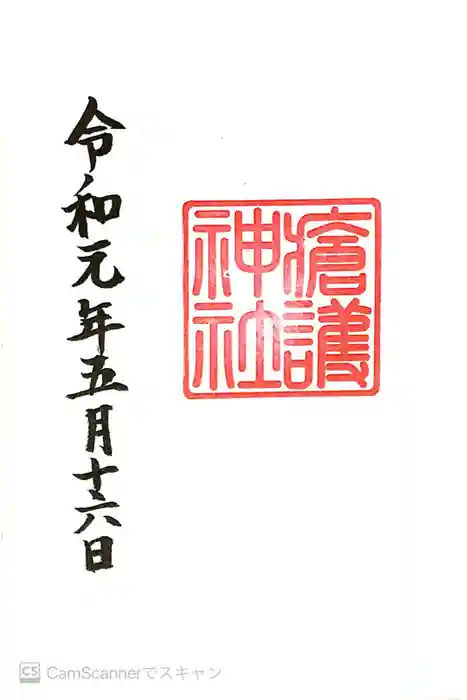 瘡護
神社
令和元年五月十六日
CS CamScannerでスキャン